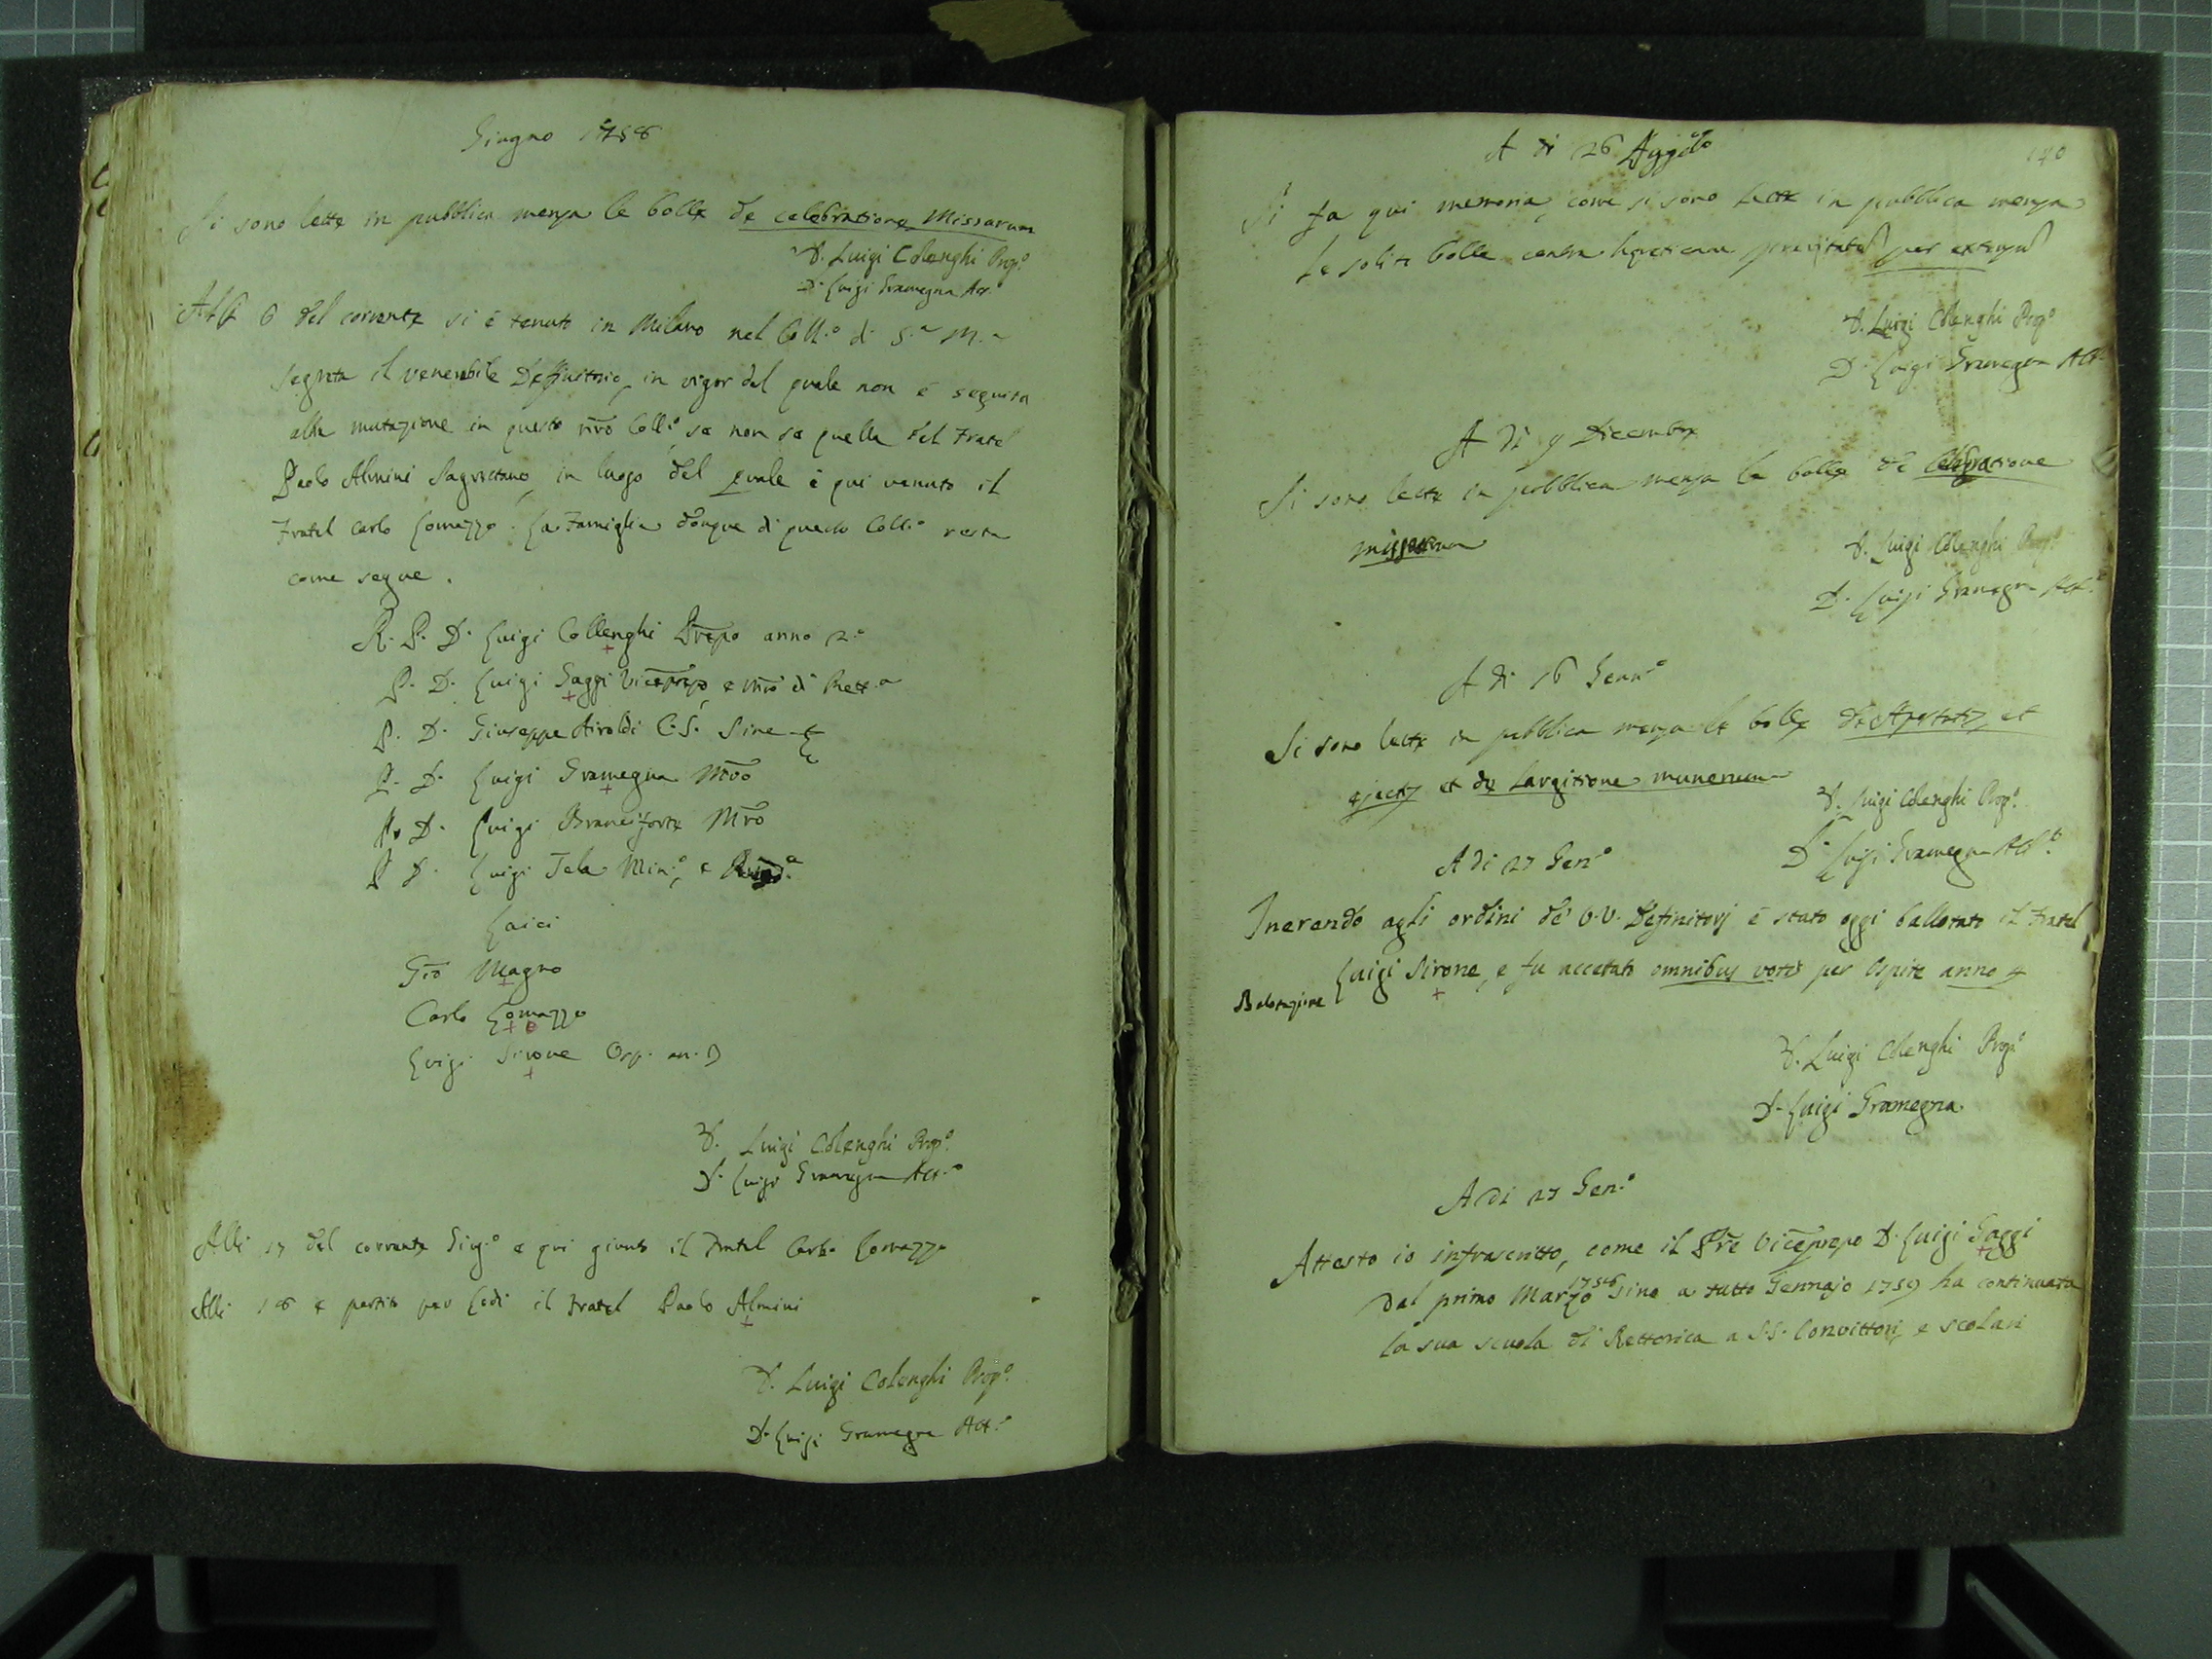 Giugno 1758
Si sono lette in pubblica mensa le bolle de celebratione Missarum
D. Luigi Colenghi Prep.o
D. Luigi Gramegna Att.o
Alli 6 del corrente si è tenuto in Milano nel Coll.o di S.a M.a
Segreta il venerabile Deffinitorio, in vigor del quale non è seguita
altra mutazione in questo nro Coll.o se non se quella del Fratel
Paolo Almini Sagrestano, in luogo del quale è qui venuto il
Fratel Carlo Comazzo. La Famiglia donque di questo Coll.o resta
come segue.
R. P. D. Luigi Collenghi Prepo anno 2.o
P. D. Luigi Gaggi Viceprepo e mro di Rett.a
P. D. Giuseppe Airoldi C. S. Sine
P. D. Luigi Gramegna Mro
P. D. Luigi Branciforte Mro
P. D. Luigi Tela Min.o e
Laici
Gio Magno
Carlo Comazzo
Luigi Sirone Osp. an.
D. Luigi Colenghi Prep.o
D. Luigi Gramegna Att.o
Alli 17 del corrente Giug.o è qui giunto il Fratel Carlo Comazzo
Alli 18 è partito per Lodi il Fratel Paolo Almini
D. Luigi Colenghi Prep.o
D. Luigi Gramegna Att.o
140
A di 26 Aggosto
Si fa qui memoria, come si sono lette in pubblica mensa
le solite bolle contra hereticam pravitatem per extensum
D. Luigi Colenghi Prep.o
D. Luigi Gramegna Att.o
A di 9 Dicembre
Si sono lette in pubblica mensa le bolle de Celebratione
missarum
D. Luigi Colenghi Prep.o
D. Luigi Gramegna Att.o
A di 16 Genn.o
Si sono lette in pubblica mensa le bolle de Apostatis et
ejectis et de largitione munerum
D. Luigi Colenghi Prep.o
A di 27 Gen.o
D. Luigi Gramegna Att.o
Inerendo agli ordini de' V.V. Definitorj è stato oggi ballotato il Fratel
Luigi Sirone, e fu accetato omnibus votis per Ospite anno
Balotazione
D. Luigi Colenghi Prep.o
D. Luigi Gramegna
A di 27 Gen.o
Attesto io infrascritto, come il Pre Viceprepo D. Luigi Gaggi
dal primo Marzo 1758 sino a tutto Gennajo 1759 ha continuata
la sua scuola di Rettorica a S.S. Convittori, e scolari